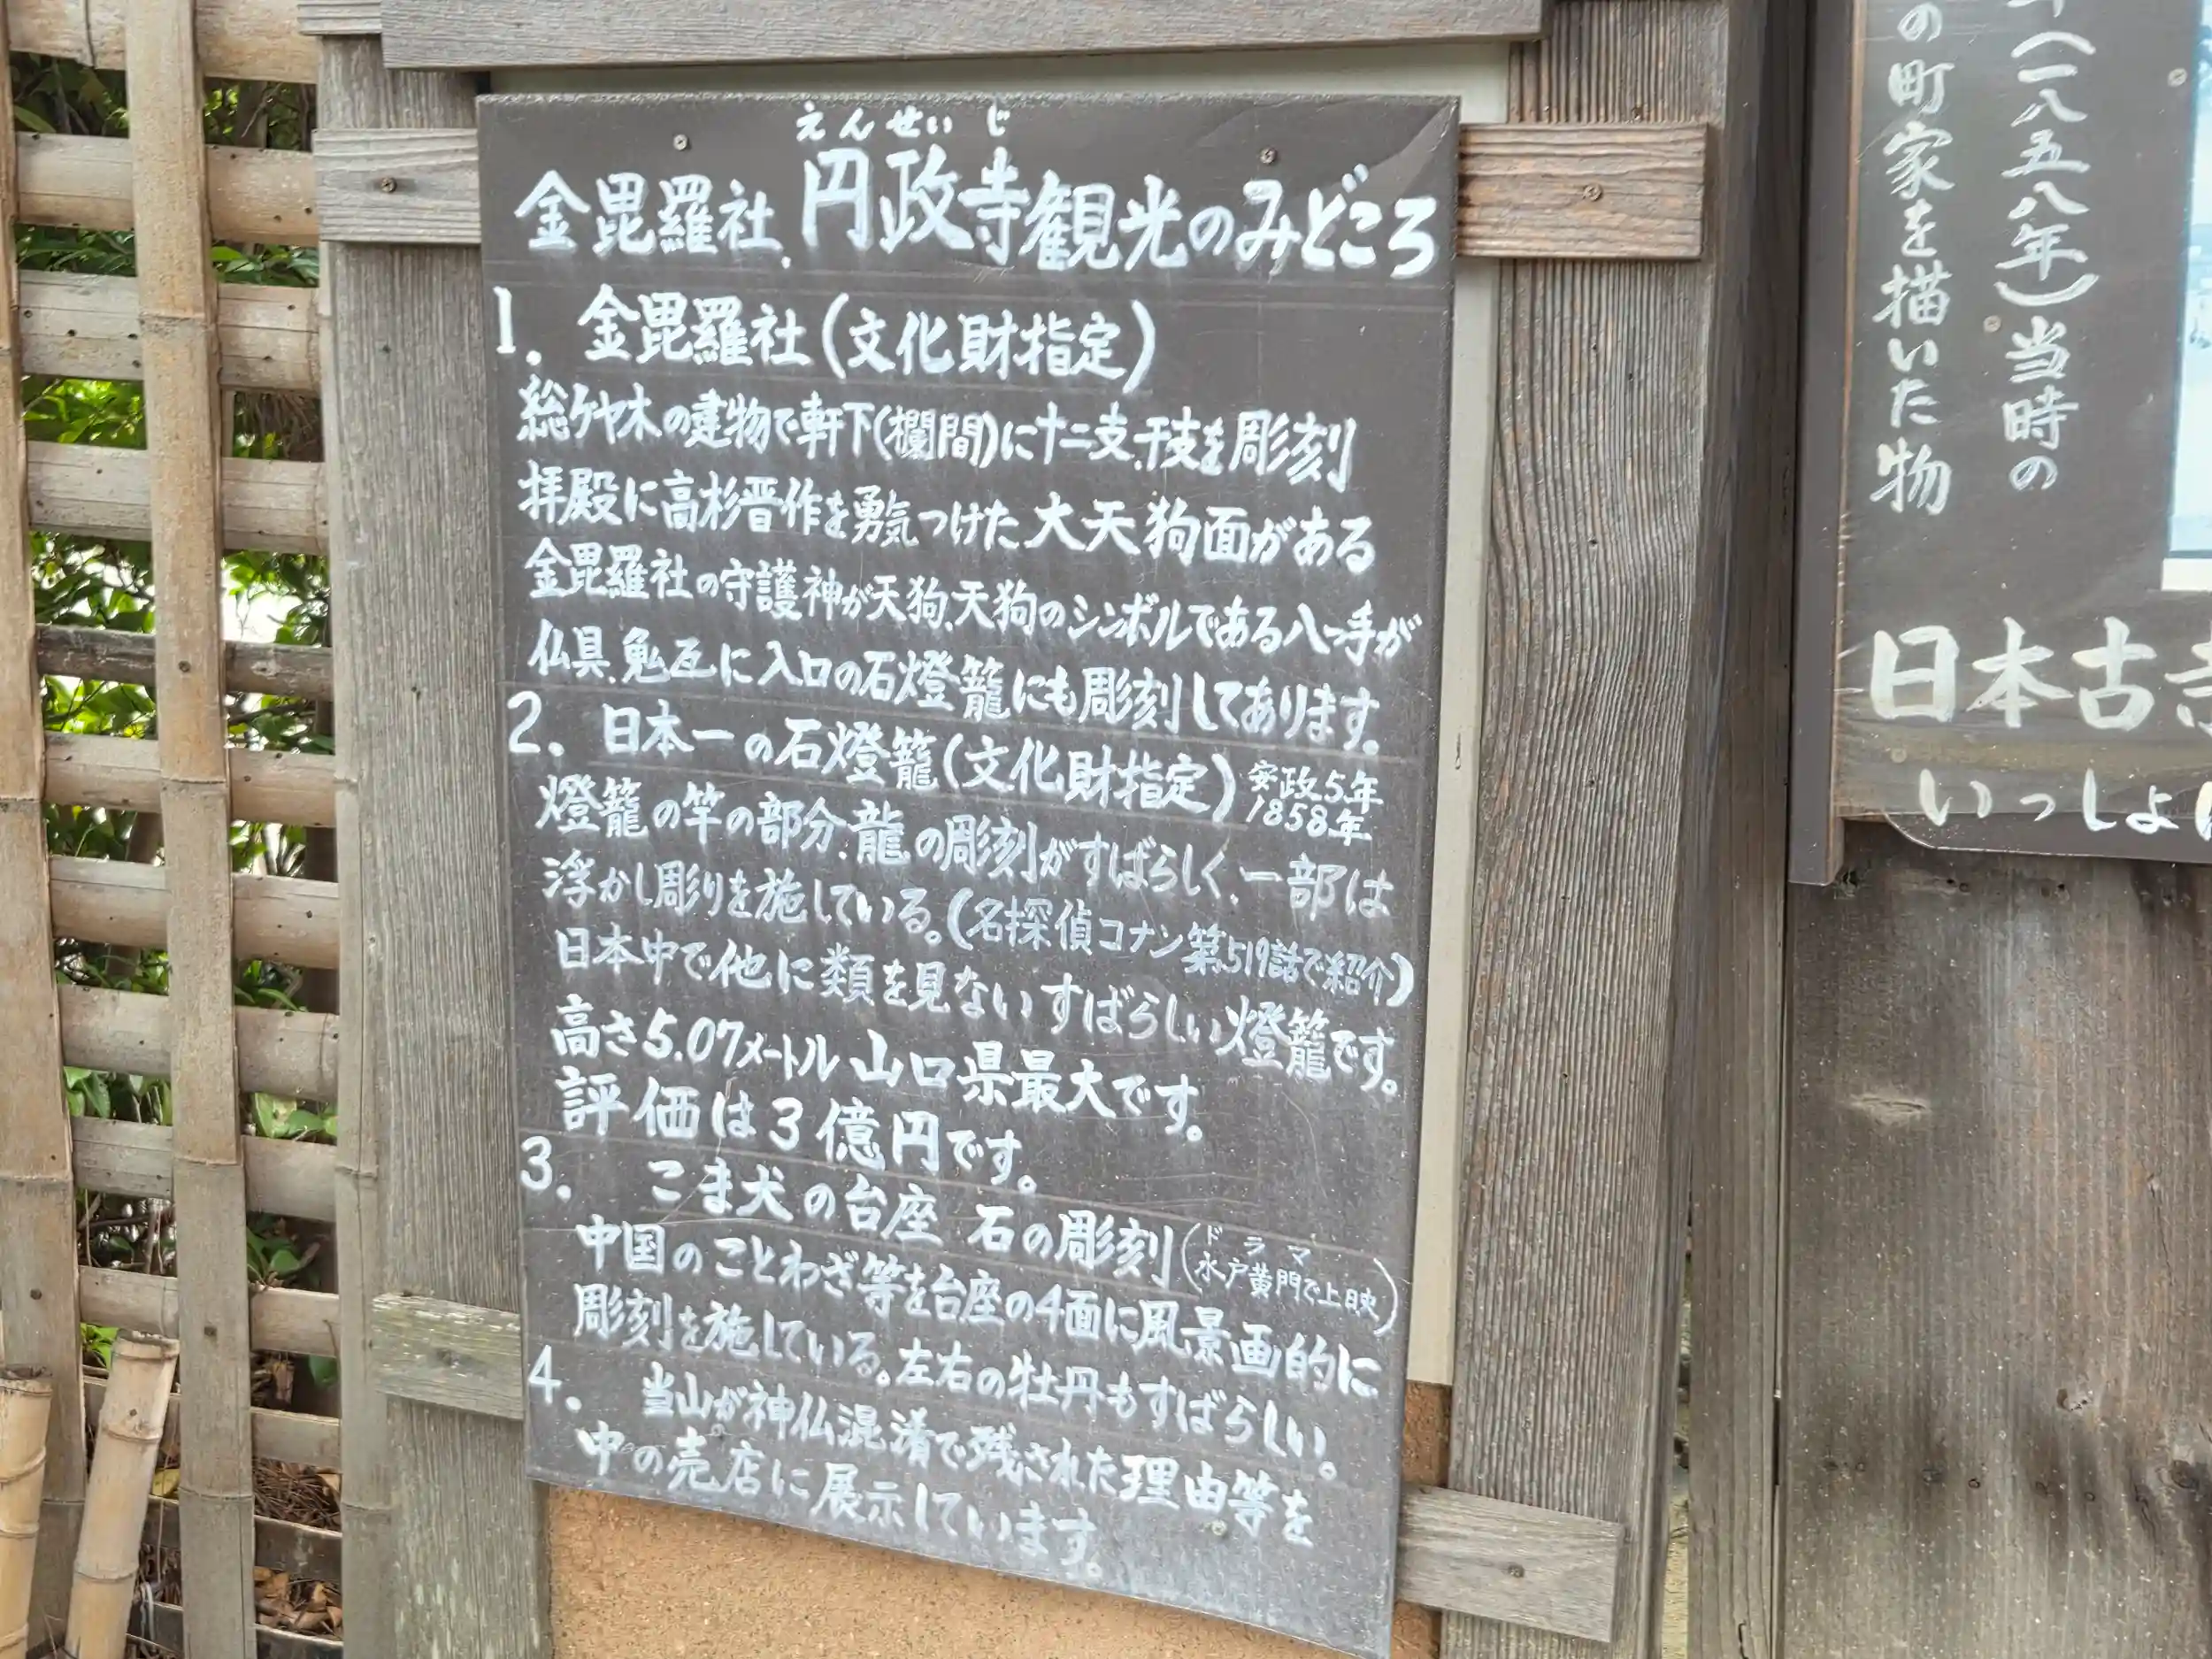 えんせいじ
金毘羅社.円政寺観光のみどころ
1. 金毘羅社(文化財指定)
総ケヤ木の建物で軒下(欄間)に十二支.干支を彫刻
拝殿に高杉晋作を勇気つけた大天狗面がある
金毘羅社の守護神が天狗.天狗のシンボルである八つ手が
仏具.鬼瓦に入口の石燈籠にも彫刻してあります。
2. 日本一の石燈籠(文化財指定)安政5年
1858年
燈籠の竿の部分.龍の彫刻がすばらしく.一部は
浮かし彫りを施している。(名探偵コナン第519話で紹介)
日本中で他に類を見ないすばらしい燈籠です。
高さ5.07メートル山口県最大です。
評価は3億円です。
3. こま犬の台座 石の彫刻(ドラマ
水戸黄門で上映)
中国のことわざ等を台座の4面に風景画的に
彫刻を施している。左右の牡丹もすばらしい。
4. 当山が神仏混淆で残された理由等を
中の売店に展示しています。
年(一八五八年)当時の
の町家を描いた物
日本古
いっしょ